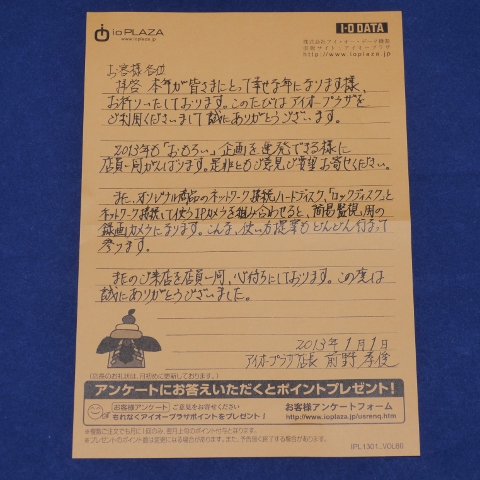 ioPLAZA
www.ioplaza.jp
I-O DATA
株式会社アイ・オー・データ機器
直販サイト・アイオープラザ
http://www.ioplaza.jp
お客様各位
拝啓 本年が皆さまにとって幸せな年になります様、
お祈りいたしております。このたびはアイオープラザを
ご利用くださいまして誠にありがとうございます。
2013年も「おもろい」企画を連発できる様に
店員一同がんばります。是非ともご意見ご要望お寄せください。
また、オリジナル商品のネットワーク接続ハードディスク、「ロックディスク」と
ネットワーク接続して使うIPカメラを組み合わせると、簡易監視用の
録画カメラになります。こんな、使い方提案もどんどん行なって
参ります。
またのご来店を店員一同、心待ちにしております。この度は
誠にありがとうございました。
2013年1月1日
アイオープラザ店長 前野 孝俊
(店長のお礼状は、月初めに更新しております。)
アンケートにお答えいただくとポイントプレゼント!
お客様アンケート ご意見をお寄せください
もれなくアイオープラザポイントをプレゼント!
お客様アンケートフォーム
http://www.ioplaza.jp/usrenq.htm
※複数ご注文でも月に1回のみ、翌月上旬のポイント付与となります。
※プレゼントのポイント数は変更になる場合があります。また、予告無く終了する場合があります。
IPL1301..VOL60